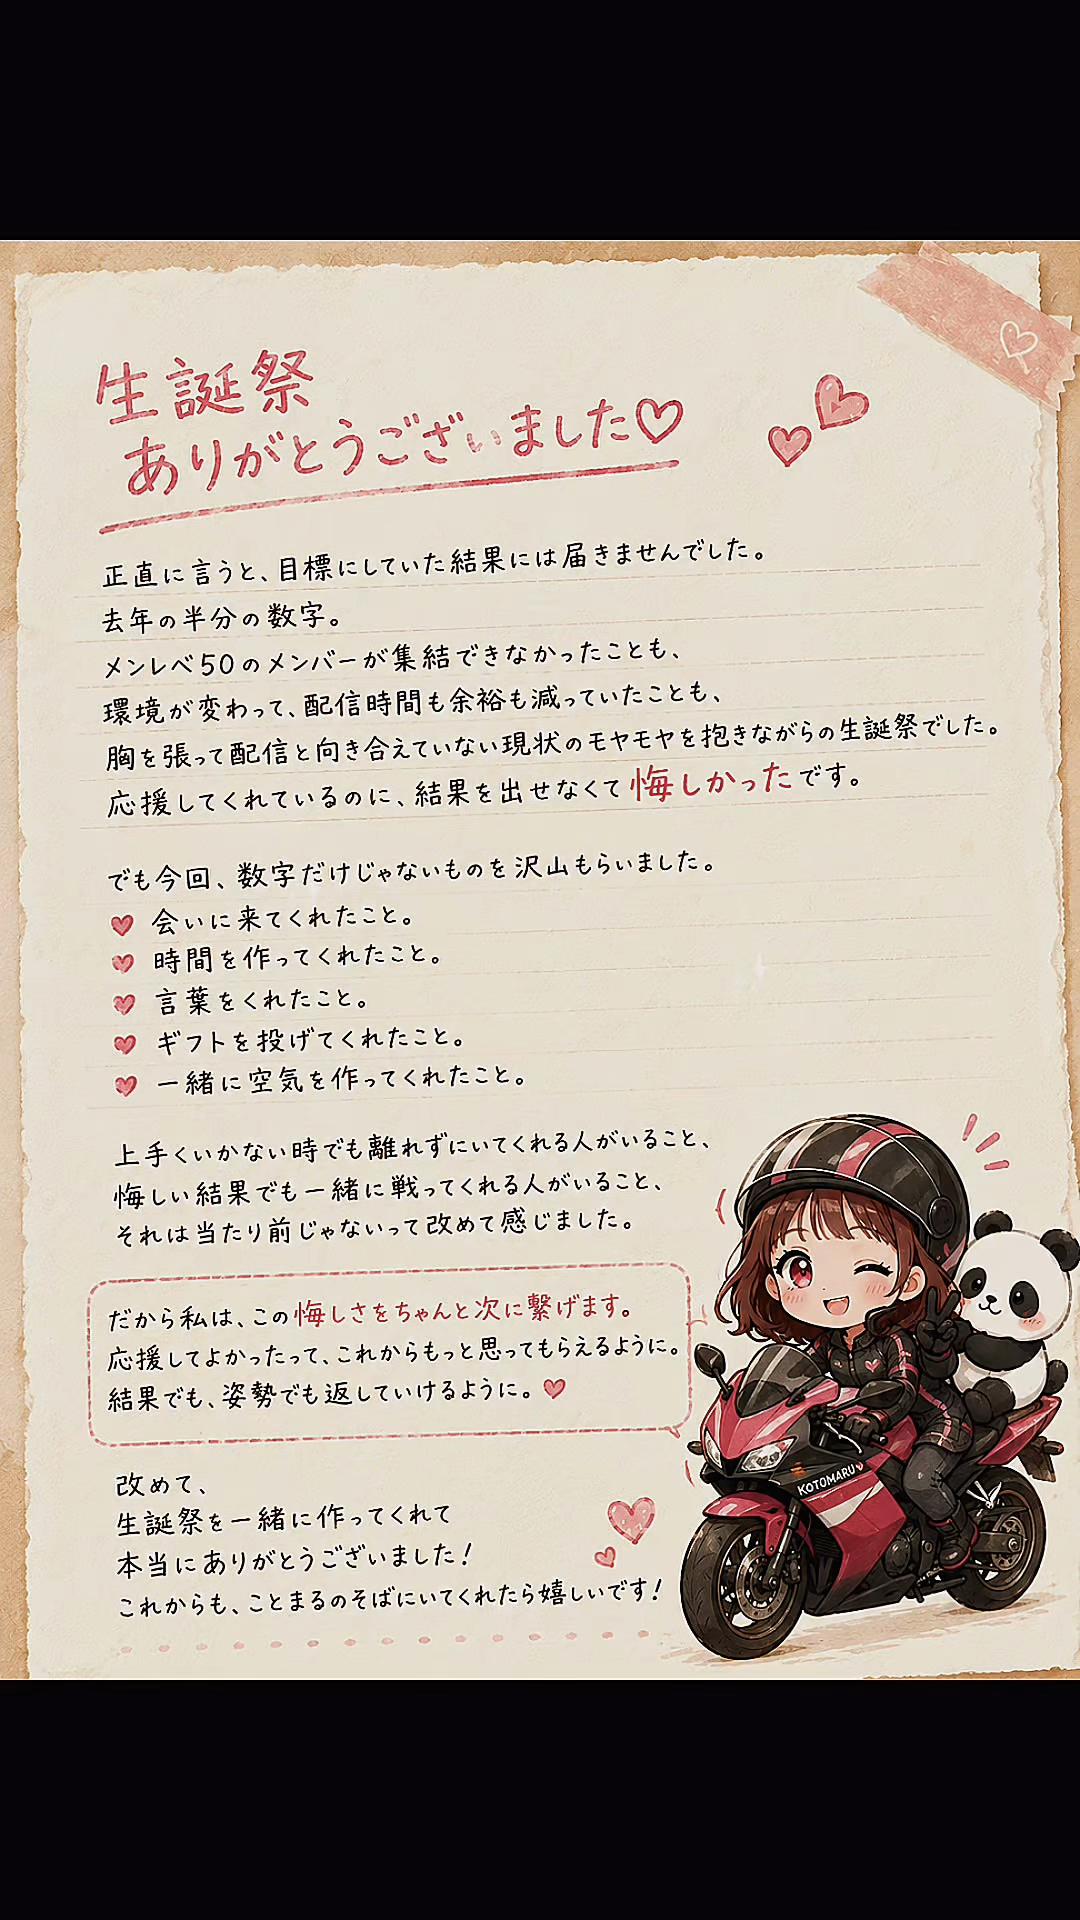 生誕祭
ありがとうございました♡
正直に言うと、目標にしていた結果には届きませんでした。
去年の半分の数字。
メンレベ50のメンバーが集結できなかったことも、
環境が変わって、配信時間も余裕も減っていたことも、
胸を張って配信と向き合えていない現状のモヤモヤを抱きながらの生誕祭でした。
応援してくれているのに、結果を出せなくて悔しかったです。
でも今回、数字だけじゃないものを沢山もらいました。
♥ 会いに来てくれたこと。
♥ 時間を作ってくれたこと。
♥ 言葉をくれたこと。
♥ ギフトを投げてくれたこと。
♥ 一緒に空気を作ってくれたこと。
上手くいかない時でも離れずにいてくれる人がいること、
悔しい結果でも一緒に戦ってくれる人がいること、
それは当たり前じゃないって改めて感じました。
だから私は、この悔しさをちゃんと次に繋げます。
応援してよかったって、これからもっと思ってもらえるように。
結果でも、姿勢でも返していけるように。♥
改めて、
生誕祭を一緒に作ってくれて
本当にありがとうございました!
これからも、ことまるのそばにいてくれたら嬉しいです!
KOTOMARU♥